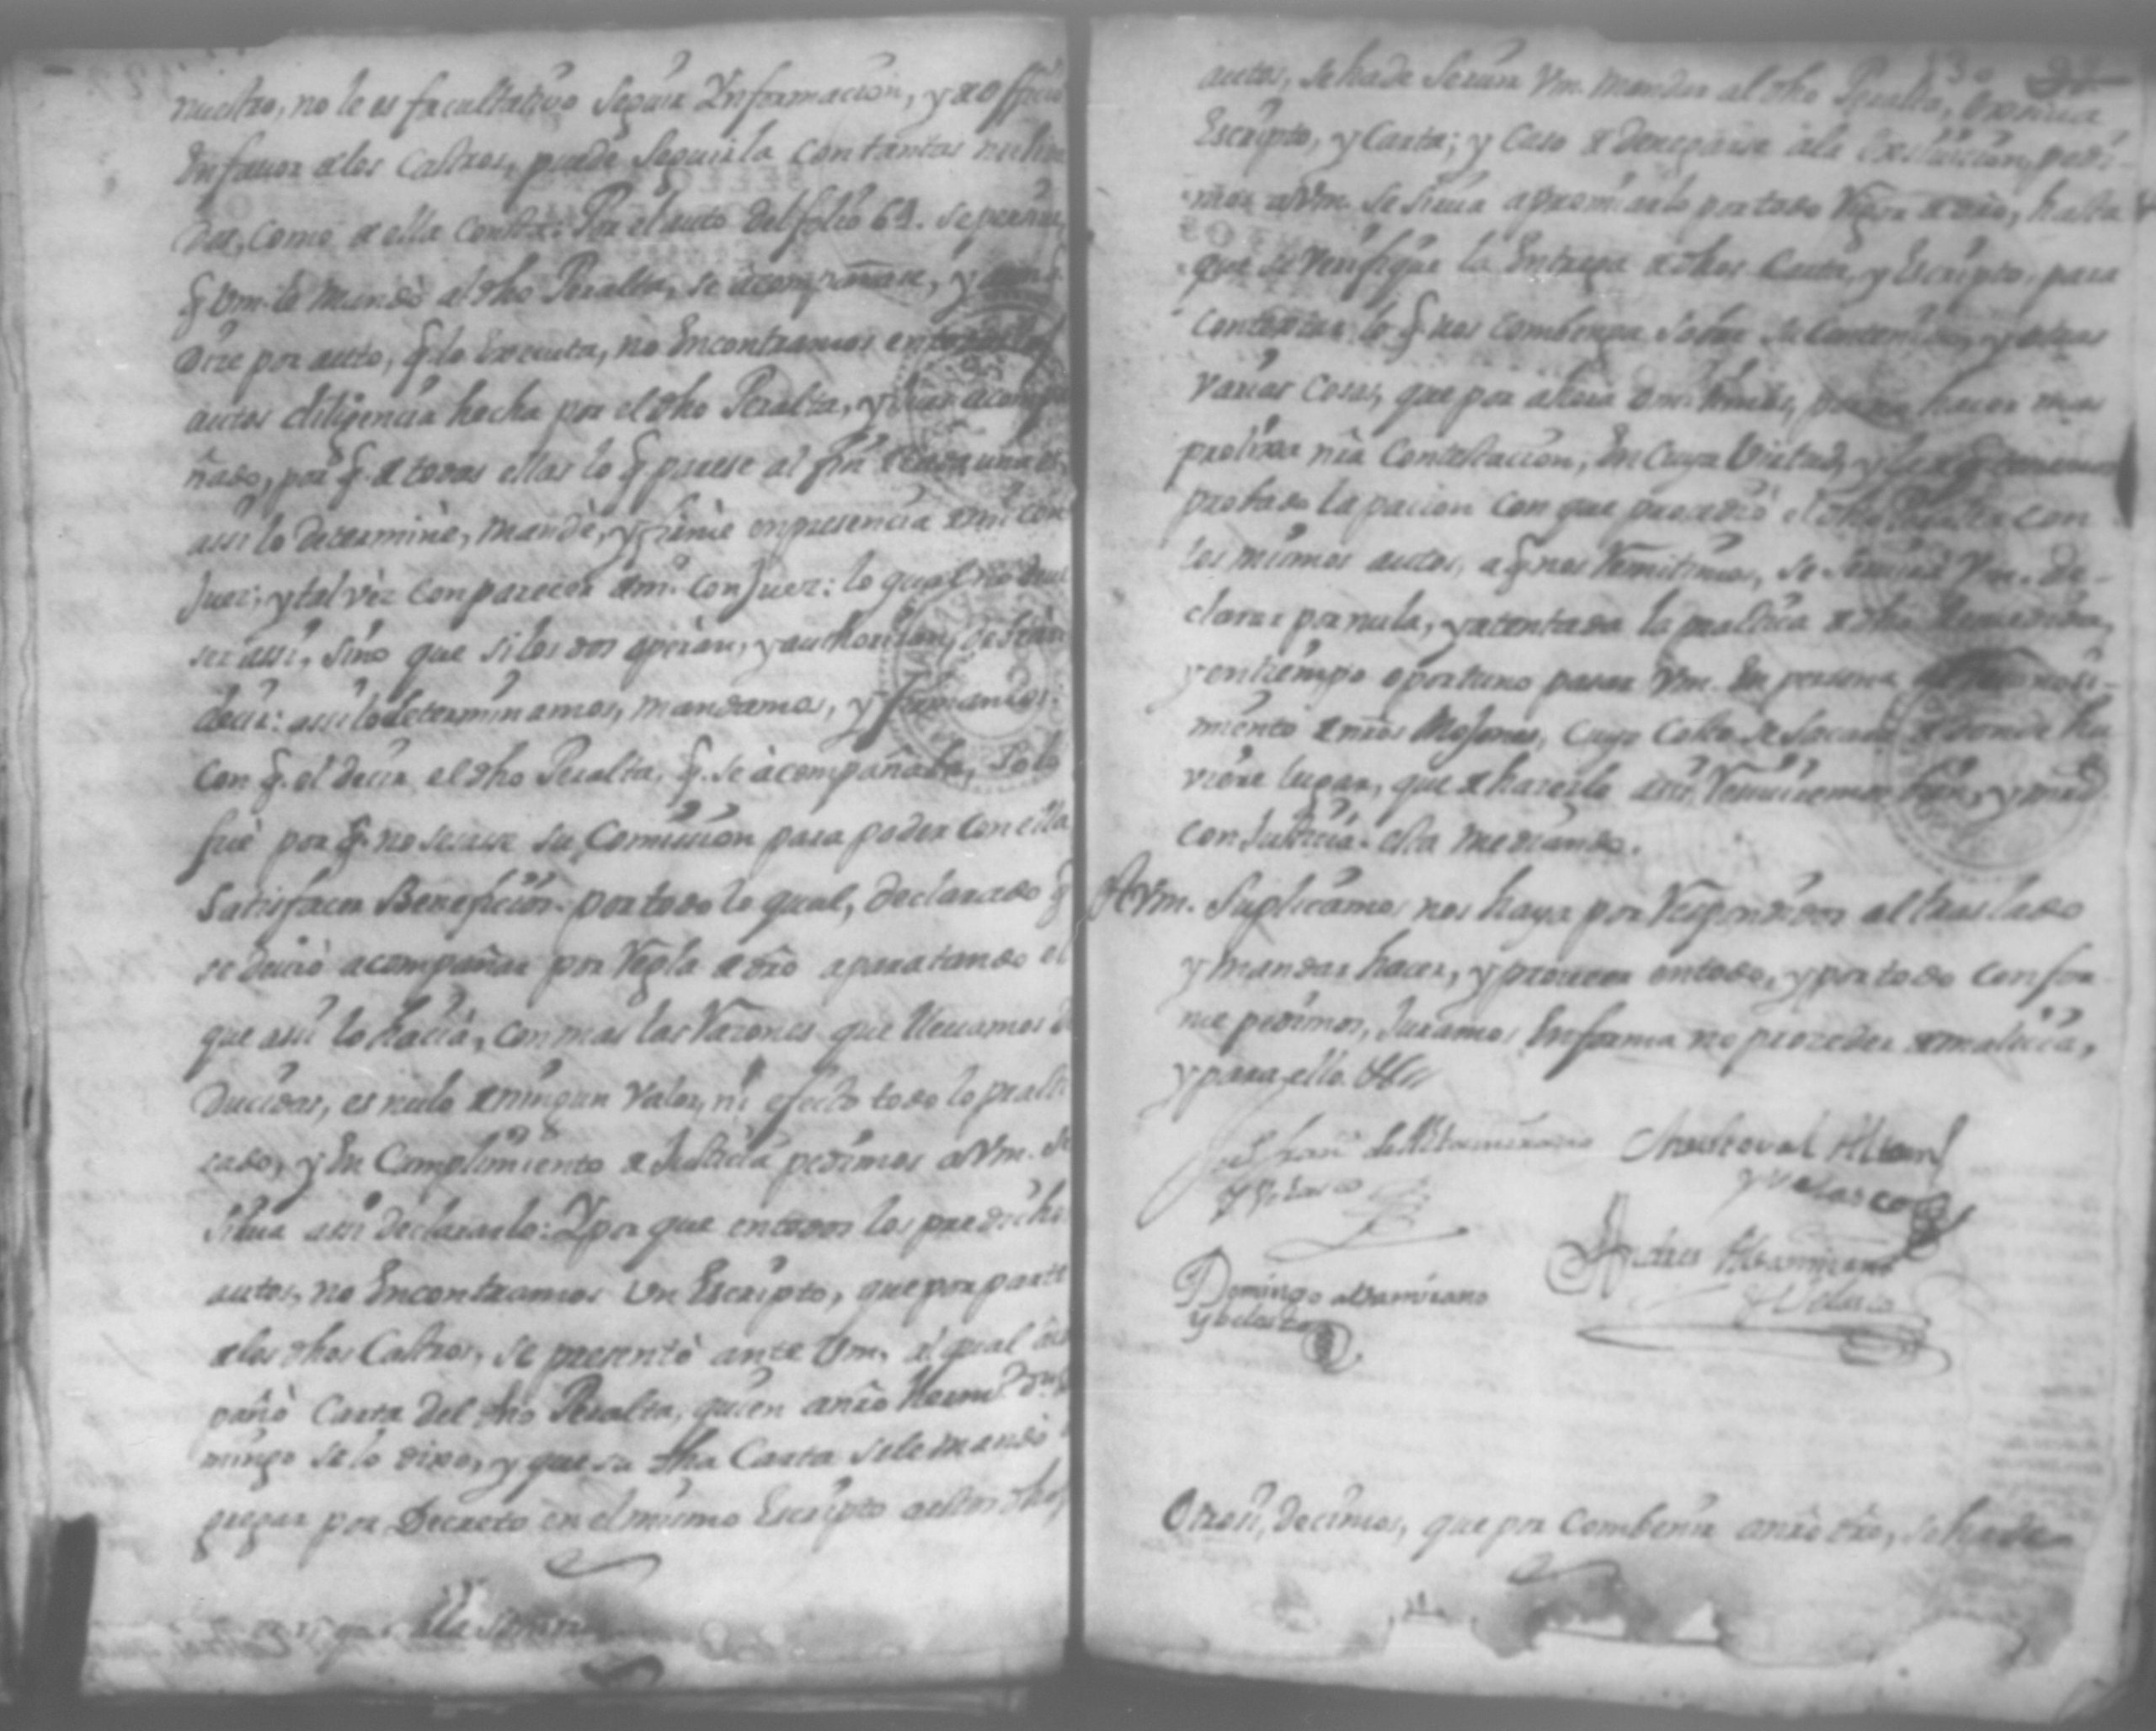 nuestro, no le es facultativo seguir Ynformacion, y de offici
En favor de los Castros, puede seguirla con tantas nulida
des, como de ella consta. Por el auto del folio 64. se
q Vm. le mandò al dho Peralta, se acompañase, y
dize por auto, q lo Executa, no Encontramos en todos los
autos diligencia hecha por el dho Peralta, y
ñado, por q. de todas ellas lo q parese al fin
assi lo determinè, mandè, y firmè en presencia de mi con
Juez, y tal vèz con parecer de mi con Juez: lo qual no deve
ser assi, sino que si los dos opèran, y authorisan, debian
decir: assi lo determinamos, mandamos, y firmamos.
Con q. el decir el dho Peralta, q. se àcompañaba, solo
fuè por q. no sesase su Comission para poder con ella
Satisfacer Beneficios. por todo lo qual, declarado q
se deviò acompañar por Regla de dro aparatando el
que assi lo hacìa, con mas las Razones que llevamos
ducidas, es nulo de ningun valor, ni efecto todo lo practi
cado, y En Cumplimiento de Justicia pedimos a Vm. se
sirva assi declararlo: Y por que en todos los predicho
autos, no Encontramos Un Escripto, que por parte
de los dhos Castros, se presentò ante Vm. al qual
pañò Carta del dho Peralta, quien a nro Herm.º Do
mingo se lo dixo, y que su dha Carta se le mandò
gregar por Decreto en el mismo Escripto a estos dhos
autos, se ha de servir Vm. mandar al dho Peralta,
Escripto, y Carta; y caso de denegarse a la Exsivicion, pedi-
mos a Vm. se sirva apremiarlo por todo Rigor de dro, hasta
que se Verifique la Entrega de dhos Carta, y Escripto, para
contextar lo q nos combenga sobre su Contenido, y otras
varias cosas, que por ahora omitimos, por no hacer mas
prolixa nra Contestacion; En cuya Virtud,
probado la pacion con que procediò el dho Peralta con
los mismos autos, a q nos Remitimos, se servirà Vm. de-
clarar por nula, y atentada la practica de dha
y en tiempo oportuno pasar Vm. En persona al reconosi-
miento de nros Mojones, cuyo costo se sacarà de donde hu
viere lugar, que de hacerlo assi Reciviremos bien, y mrd
con Justicia. esta mediando.
A Vm. Suplicamos nos haya por Respondidos al traslado
y mandar hacer, y proveer en todo, y por todo confor
me pedimos, Juramos En forma no proceder de malicia,
y para ello. &ª
de Altamirano
y Velasco
Sandoval Altam
y Velasco
Andres Altamirano
y Velasco
Domingo altamirano
y belasco
Otrosi, decimos, que por combenir a nro dro, se ha de